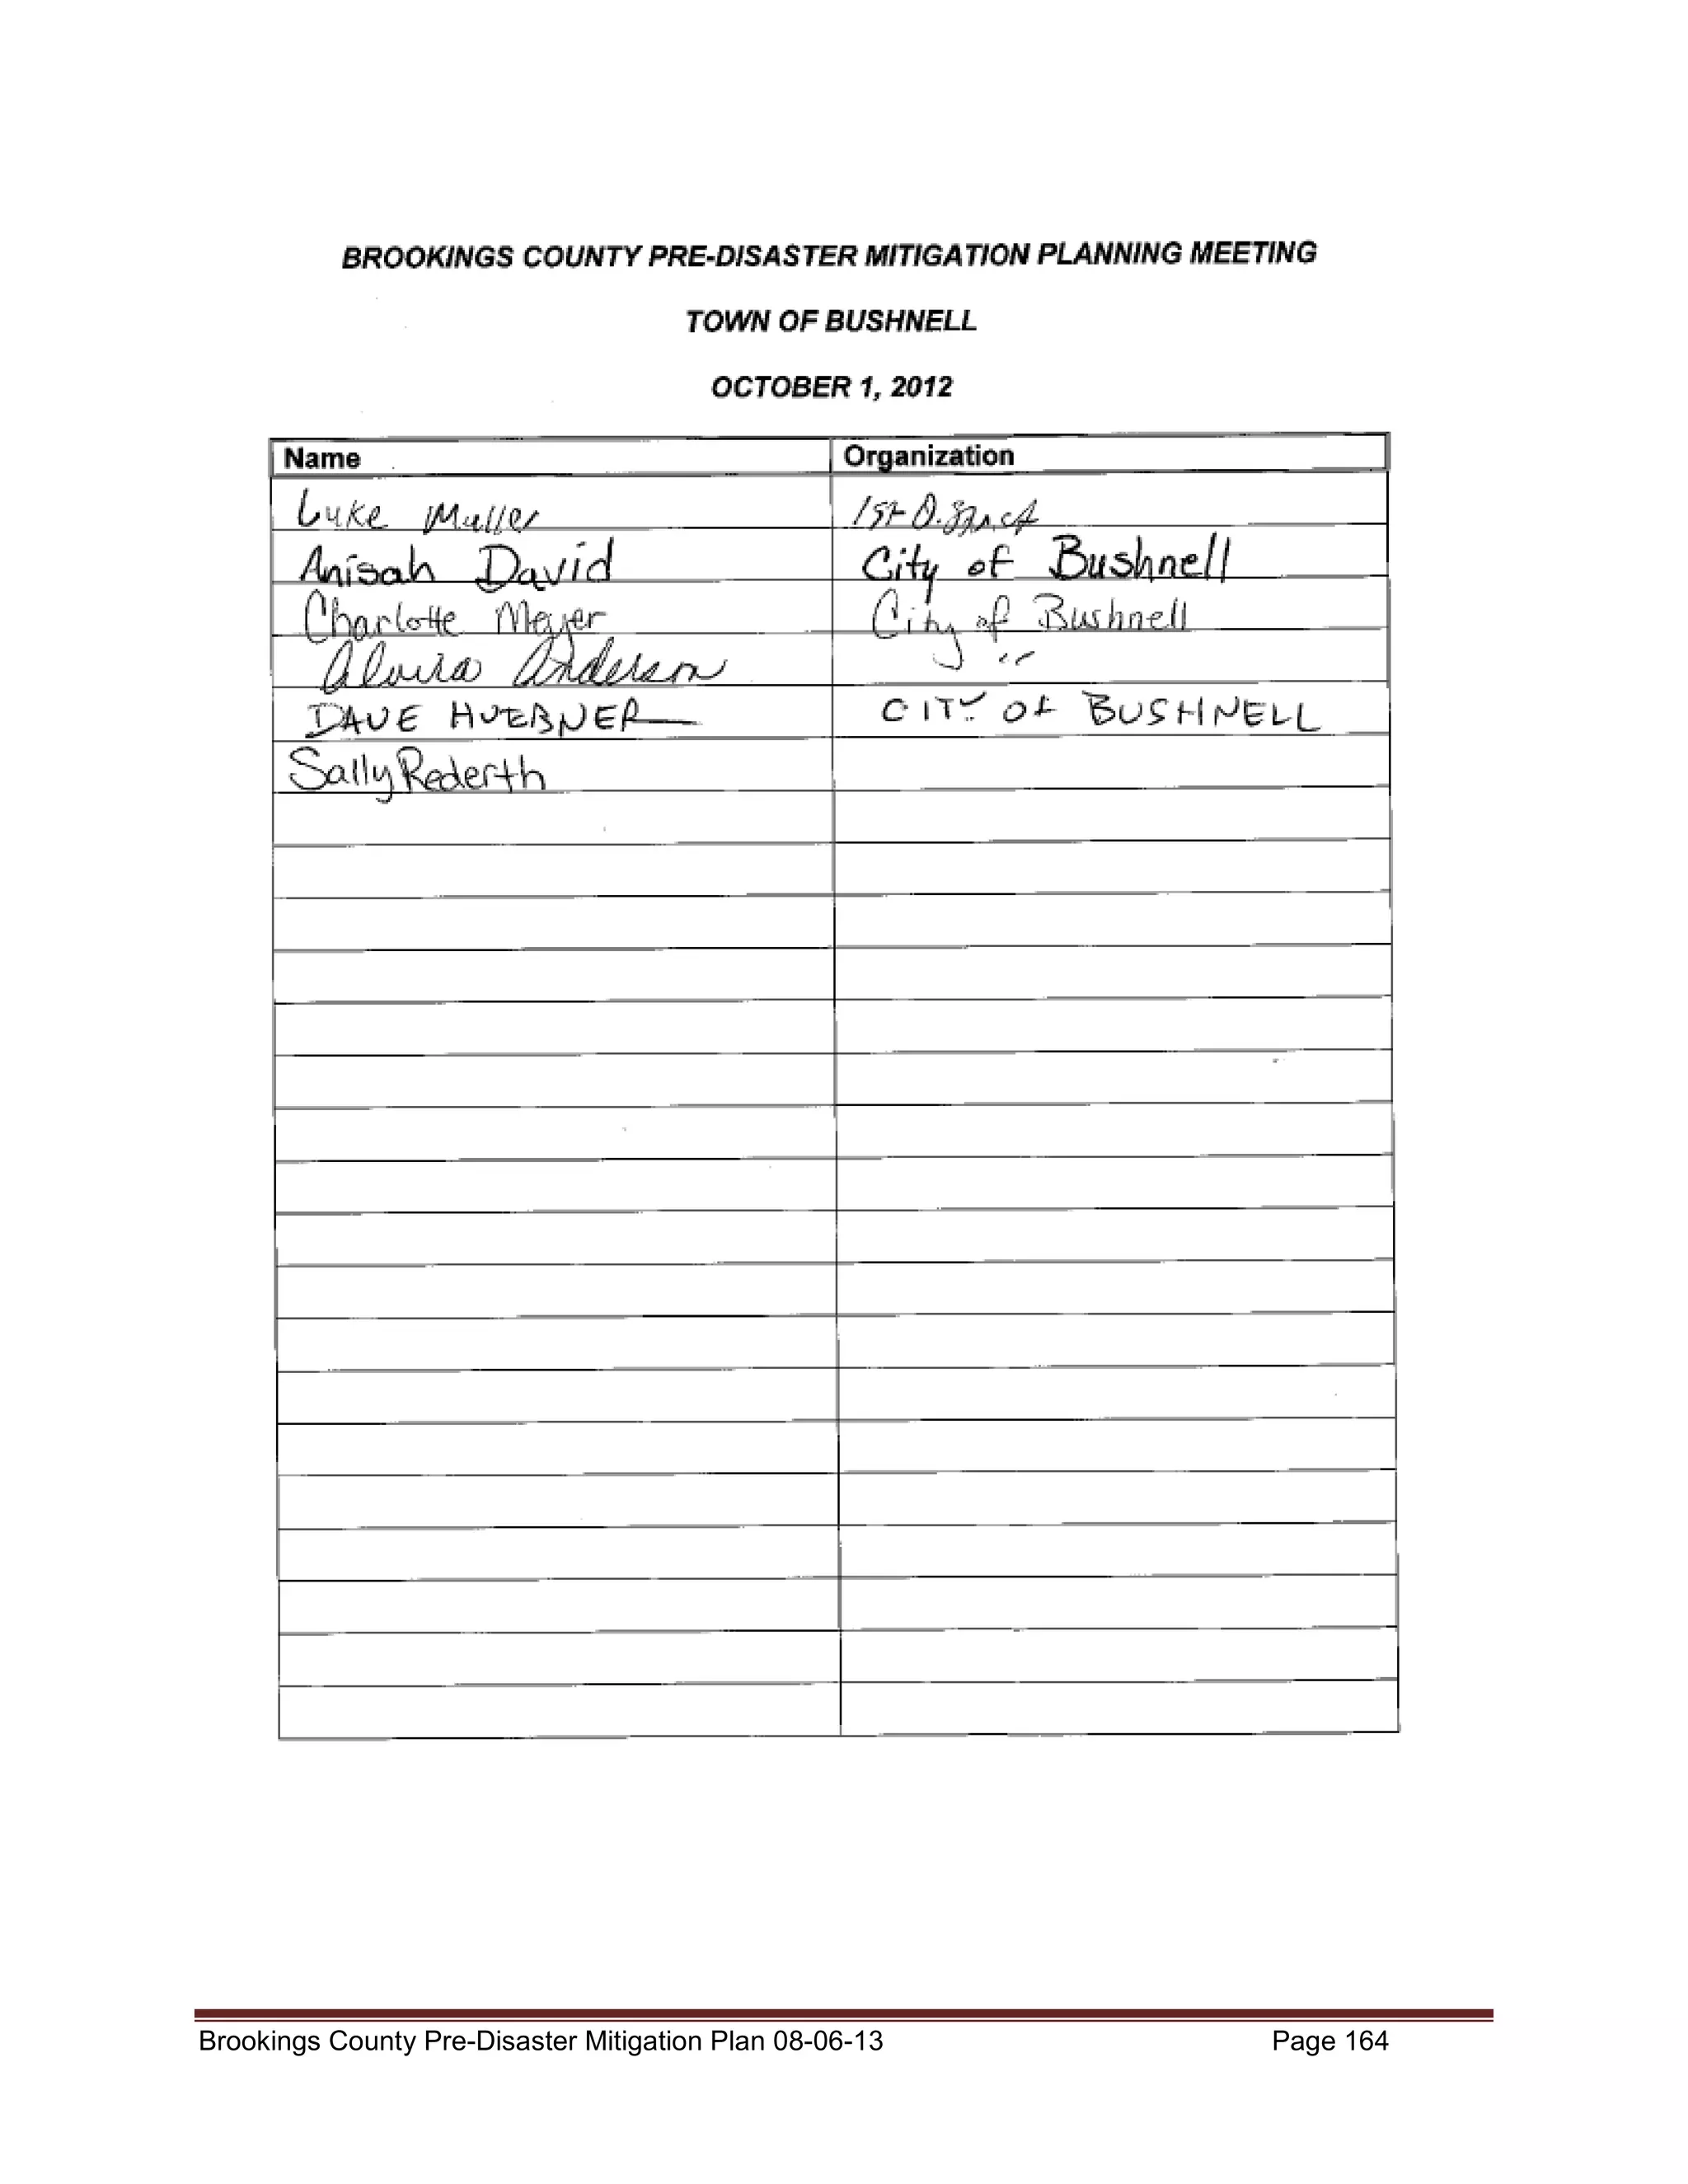 BROOKINGS COUNTY PRE-DISASTER MITIGATION PLANNING MEETING
TOWN OF BUSHNELL
OCTOBER 1, 2012
Name Organization
Luke Muller 1st District
Anisah David City of Bushnell
Charlotte Meyer City of Bushnell
Anderson "
DAVE HUEBNER CITY OF BUSHNELL
Sally Rederth
Brookings County Pre-Disaster Mitigation Plan 08-06-13 Page 164